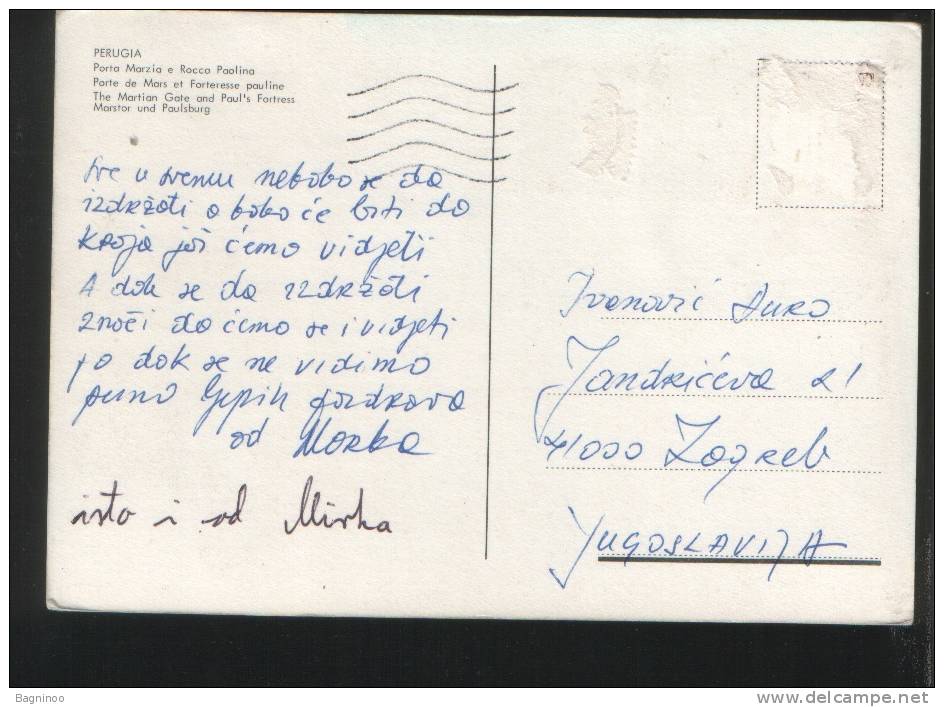 PERUGIA
Porta Marzia e Rocca Paolina
Porte de Mars et Forteresse pauline
The Martian Gate and Paul's Fortress
Marstor und Paulsburg
Sve u svemu nekako se da
izdržati a kako će biti do
kraja još ćemo vidjeti
A dok se da izdržati
znači da ćemo se i vidjeti
pa dok se ne vidimo
puno lijepih pozdrava
od Marka
isto i od Mirka
Ivanović Đuro
Jandrićeva 21
41000 Zagreb
JUGOSLAVIJA
Bagninoo
www.delcampe.net